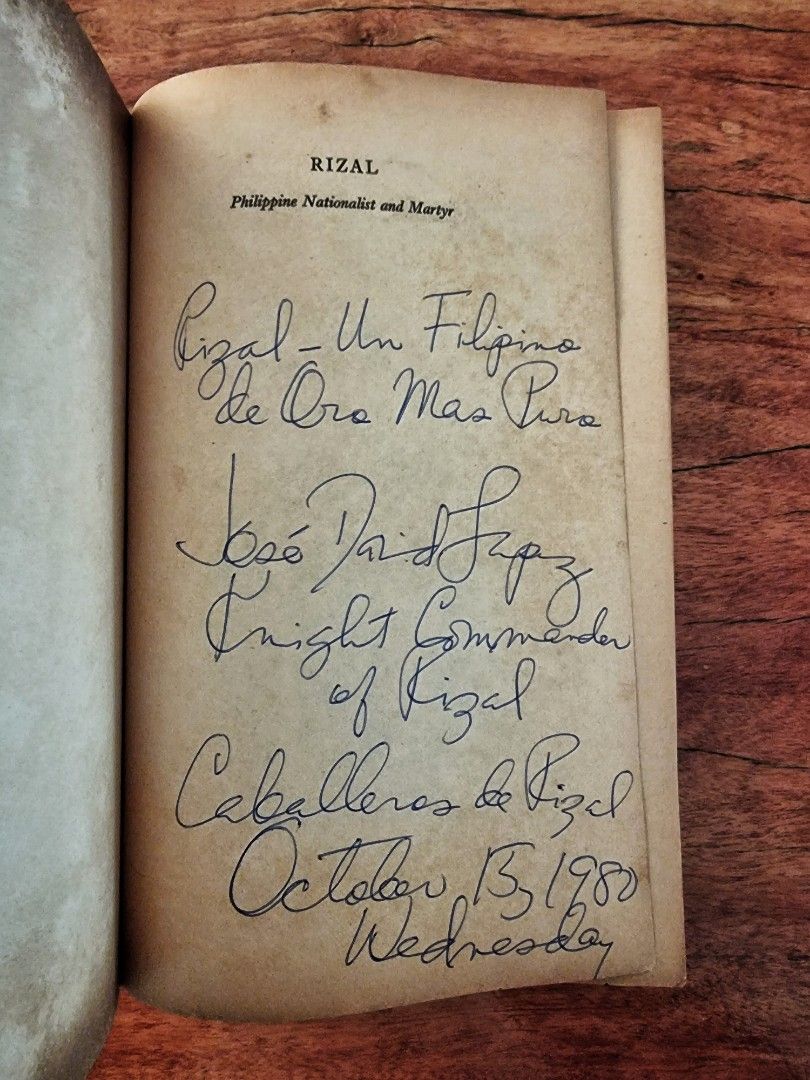 RIZAL
Philippine Nationalist and Martyr
Rizal – Un Filipino
de Oro Mas Puro
José David Lapuz
Knight Commander
of Rizal
Caballeros de Rizal
October 15, 1980
Wednesday